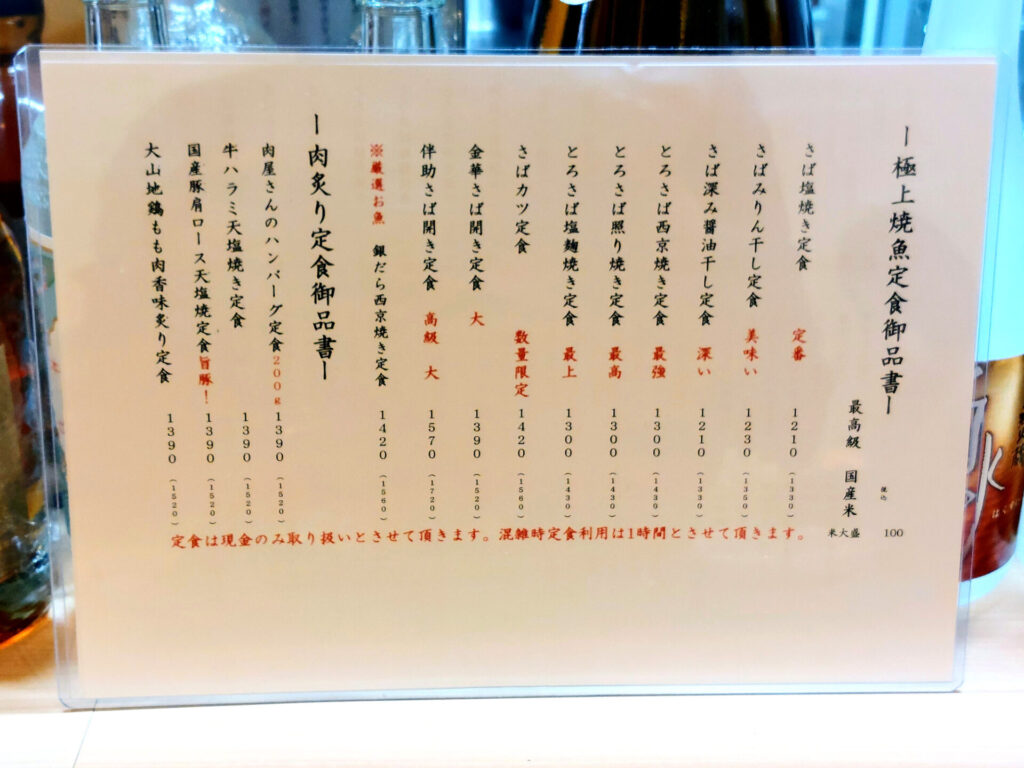 ー極上焼魚定食御品書ー
最高級 国産米
税込
米大盛 100
さば塩焼き定食 定番 1210（1330）
さばみりん干し定食 美味い 1230（1350）
さば深み醤油干し定食 深い 1210（1330）
とろさば西京焼き定食 最強 1300（1430）
とろさば照り焼き定食 最高 1300（1430）
とろさば塩麹焼き定食 最上 1300（1430）
さばカツ定食 数量限定 1420（1560）
金華さば開き定食 大 1390（1520）
伴助さば開き定食 高級 大 1570（1720）
※厳選お魚 銀だら西京焼き定食 1420（1560）
ー肉炙り定食御品書ー
肉屋さんのハンバーグ定食200g 1390（1520）
牛ハラミ天塩焼き定食 1390（1520）
国産豚肩ロース天塩焼定食旨豚！ 1390（1520）
大山地鶏もも肉香味炙り定食 1390（1520）
定食は現金のみ取り扱いとさせて頂きます。混雑時定食利用は1時間とさせて頂きます。